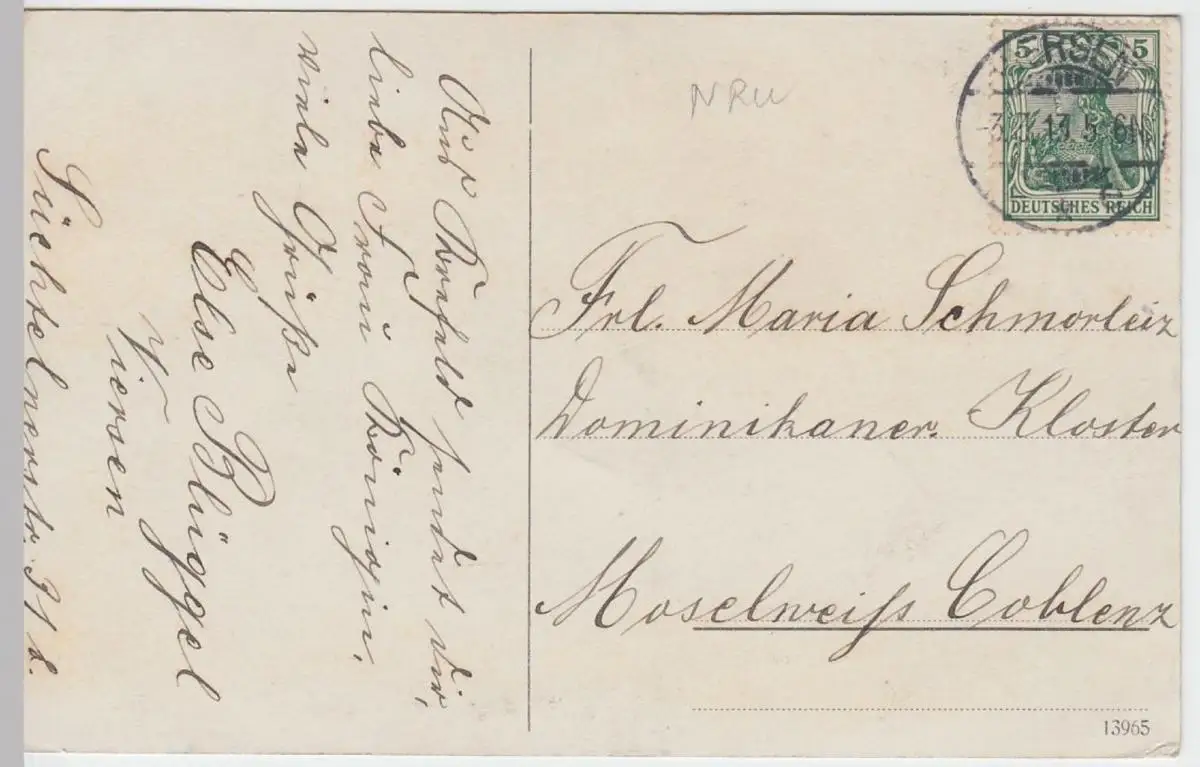 Aus Krefeld sendet dir,
liebe Frau Königin,
viele Grüße
Else Plüggel
Viersen
Süchtelnerstr. 31 d.
NRW
5 5
ERSEN
13 5-6N
DEUTSCHES REICH
Frl. Maria Schmorleiz
Dominikaner. Kloster
Moselweiß Coblenz
13965